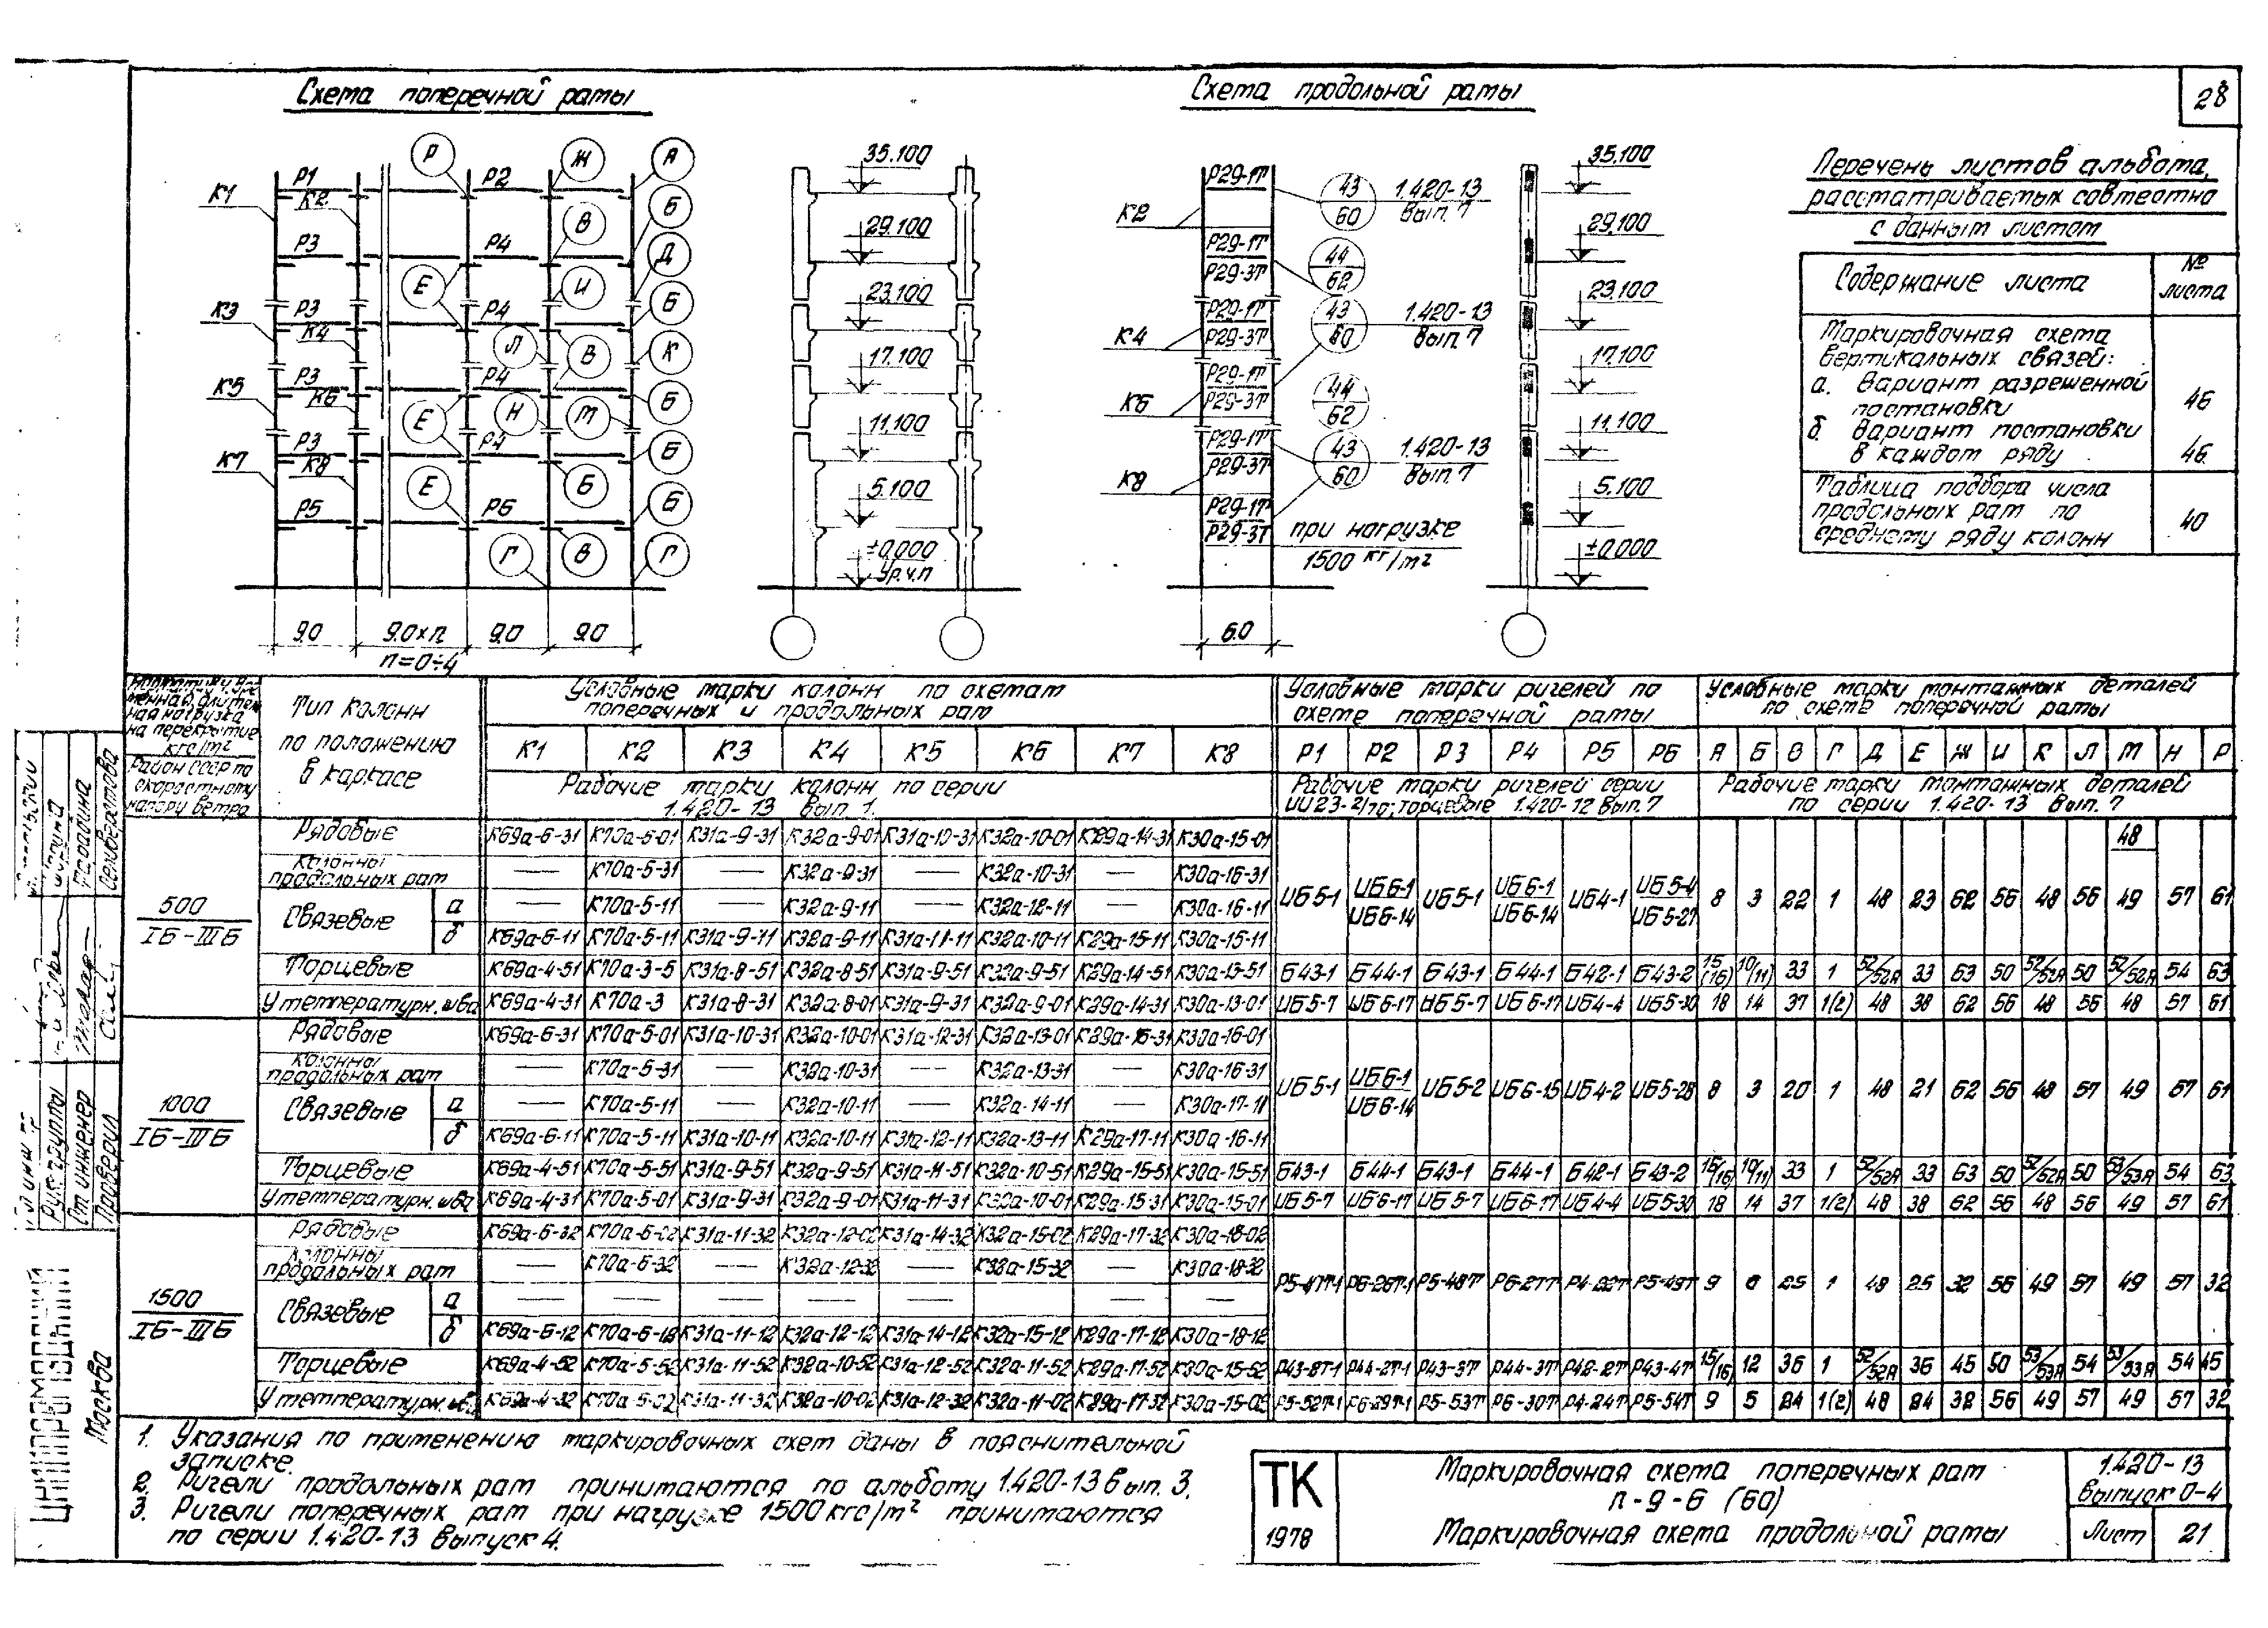 Схема поперечной рамы
Схема продольной рамы
28
Р
Ж
А
Р1
К2
Р2
К1
Б
В
Р3
Р4
Д
Е
И
Б
К3
Р3
К4
Р4
Л
В
К
К5
Р3
К6
Р4
Е
Н
М
Б
К7
Р3
К8
Р4
Е
Б
Б
Р5
Р6
Г
В
Г
9.0
9.0×п
9.0
9.0
п=0÷4
35.100
29.100
23.100
17.100
11.100
5.100
±0.000
Ур.ч.п
К2
К4
К6
К8
Р29-1Т
43
60
1.420-13
Вып. 7
Р29-1Т
Р29-3Т
44
62
Р29-1Т
Р29-3Т
43
60
1.420-13
Вып. 7
Р29-1Т
Р29-3Т
44
62
Р29-1Т
Р29-3Т
43
60
1.420-13
Вып. 7
Р29-1Т
Р29-3Т
при нагрузке
1500 кг/м²
6.0
35.100
29.100
23.100
17.100
11.100
5.100
±0.000
Перечень листов альбома,
рассматриваемых совместно
с данным листом
Содержание листа
№ листа
Маркировочная схема
вертикальных связей:
а. Вариант разрешенной
постановки
46
б. Вариант постановки
в каждом ряду
46.
Таблица подбора числа
продольных рам по
среднему ряду колонн
40
на перекрытие
кгс/м²
Район СССР по
скоростному
напору ветра
Тип колонн
по положению
в каркасе
Условные марки колонн по схемам
поперечных и продольных рам
К1 К2 К3 К4 К5 К6 К7 К8
Рабочие марки колонн по серии
1.420-13 вып. 1.
Условные марки ригелей по
схеме поперечной рамы
Р1 Р2 Р3 Р4 Р5 Р6
Рабочие марки ригелей серии
ИИ23-2/70; торцевые 1.420-12 вып. 7
Условные марки монтажных деталей
по схеме поперечной рамы
А Б В Г Д Е Ж И К Л М Н Р
Рабочие марки монтажных деталей
по серии 1.420-13 вып. 7
500
IБ-IIIБ
Рядовые К69а-6-31 К70а-5-01 К31а-9-31 К32а-9-01 К31а-10-31 К32а-10-01 К29а-14-31 К30а-15-01
Колонны
продольных рам — К70а-5-31 — К32а-9-31 — К32а-10-31 — К30а-16-31
Связевые
а — К70а-5-11 — К32а-9-11 — К32а-12-11 — К30а-16-11
б К69а-6-11 К70а-5-11 К31а-9-11 К32а-9-11 К31а-11-11 К32а-10-11 К29а-15-11 К30а-15-11
ИБ5-1 ИБ6-1/ИБ6-14 ИБ5-1 ИБ6-1/ИБ6-14 ИБ4-1 ИБ5-4/ИБ5-27 8 3 22 1 48 23 62 56 48 56 48/49 57 61
Торцевые К69а-4-51 К70а-3-5 К31а-8-51 К32а-8-51 К31а-9-51 К32а-9-51 К29а-14-51 К30а-13-51 Б43-1 Б44-1 Б43-1 Б44-1 Б42-1 Б43-2 15/(16) 10/(11) 33 1 52/52А 33 63 50 52/52А 50 52/52А 54 63
У температурн. шва К69а-4-31 К70а-3 К31а-8-31 К32а-8-01 К31а-9-31 К32а-9-01 К29а-14-31 К30а-13-01 ИБ5-7 ИБ6-17 ИБ5-7 ИБ6-17 ИБ4-4 ИБ5-30 18 14 37 1(2) 48 38 62 56 48 56 48 57 61
1000
IБ-IIIБ
Рядовые К69а-6-31 К70а-5-01 К31а-10-31 К32а-10-01 К31а-12-31 К32а-13-01 К29а-16-31 К30а-16-01
Колонны
продольных рам — К70а-5-31 — К32а-10-31 — К32а-13-31 — К30а-16-31
Связевые
а — К70а-5-11 — К32а-10-11 — К32а-14-11 — К30а-17-11
б К69а-6-11 К70а-5-11 К31а-10-11 К32а-10-11 К31а-12-11 К32а-13-11 К29а-17-11 К30а-16-11
ИБ5-1 ИБ6-1/ИБ6-14 ИБ5-2 ИБ6-15 ИБ4-2 ИБ5-28 8 3 20 1 48 21 62 56 48 57 49 57 61
Торцевые К69а-4-51 К70а-5-51 К31а-9-51 К32а-9-51 К31а-11-51 К32а-10-51 К29а-15-51 К30а-15-51 Б43-1 Б44-1 Б43-1 Б44-1 Б42-1 Б43-2 15/(16) 10/(11) 33 1 52/52А 33 63 50 52/52А 50 53/53А 54 63
У температурн. шва К69а-4-31 К70а-5-01 К31а-9-31 К32а-9-01 К31а-11-31 К32а-10-01 К29а-15-31 К30а-15-01 ИБ5-7 ИБ6-17 ИБ5-7 ИБ6-17 ИБ4-4 ИБ5-30 18 14 37 1(2) 48 38 62 56 48 56 49 57 61
1500
IБ-IIIБ
Рядовые К69а-6-32 К70а-6-02 К31а-11-32 К32а-12-02 К31а-14-32 К32а-15-02 К29а-17-32 К30а-18-02
Колонны
продольных рам — К70а-6-32 — К32а-12-32 — К32а-15-32 — К30а-18-32
Связевые
а — — — — — — — —
б К69а-6-12 К70а-6-12 К31а-11-12 К32а-12-12 К31а-14-12 К32а-15-12 К29а-17-12 К30а-18-12
Р5-47Т-1 Р6-26Т-1 Р5-48Т Р6-27Т Р4-22Т Р5-49Т 9 6 25 1 48 25 32 56 49 57 49 57 32
Торцевые К69а-4-52 К70а-5-52 К31а-11-52 К32а-10-52 К31а-12-52 К32а-11-52 К29а-17-52 К30а-15-52 Р43-8Т-1 Р44-2Т-1 Р43-3Т Р44-3Т Р42-2Т Р43-4Т 15/(16) 12 36 1 52/52А 36 45 50 53/53А 54 53/53А 54 45
У температурн. шва К69а-4-32 К70а-5-02 К31а-11-32 К32а-10-02 К31а-12-32 К32а-11-02 К29а-17-32 К30а-15-02 Р5-52Т-1 Р6-29Т-1 Р5-53Т Р6-30Т Р4-24Т Р5-54Т 9 5 24 1(2) 48 24 32 56 49 57 49 57 32
1. Указания по применению маркировочных схем даны в пояснительной
записке.
2. Ригели продольных рам принимаются по альбому 1.420-13 вып. 3.
3. Ригели поперечных рам при нагрузке 1500 кгс/м² принимаются
по серии 1.420-13 выпуск 4.
ТК
1978
Маркировочная схема поперечных рам
п-9-6 (60)
Маркировочная схема продольной рамы
1.420-13
Выпуск 0-4
Лист 21
Рук. группы
Ст. инженер
Проверил
Селиверстова
ЦНИИПРОМЗДАНИЙ
Москва